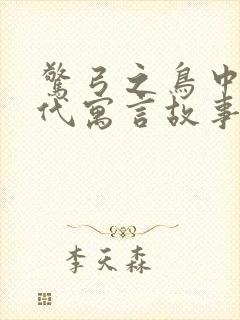 驚弓之鳥中
代寓言故事
李天森